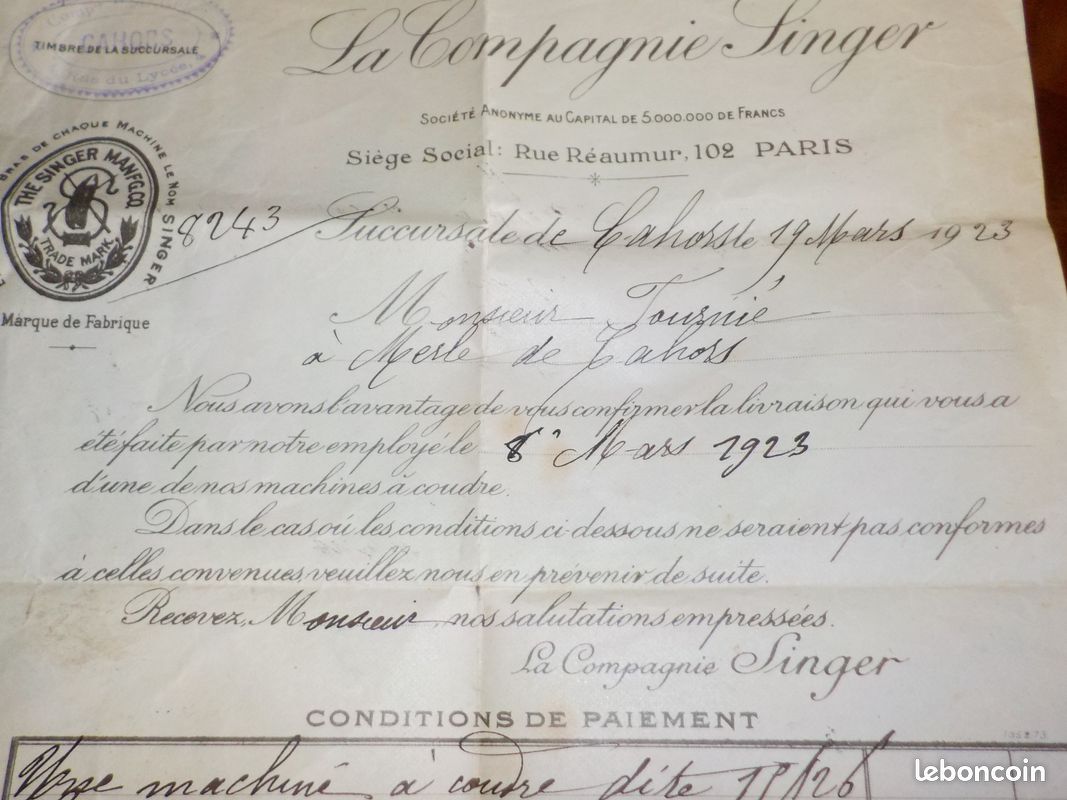 CAHORS
TIMBRE DE LA SUCCURSALE
Rue du Lycée,
La Compagnie Singer
SOCIÉTÉ ANONYME AU CAPITAL DE 5.000.000 DE FRANCS
Siège Social: Rue Réaumur, 102 PARIS
BRAS DE CHAQUE MACHINE LE NOM SINGER
THE SINGER MANFG. CO.
TRADE MARK
Marque de Fabrique
8243
Succursale de Cahors le 19 Mars 1923
Monsieur Tournié
à Merle de Cahors
Nous avons l'avantage de vous confirmer la livraison qui vous a
été faite par notre employé le 8 Mars 1923
d'une de nos machines à coudre.
Dans le cas où les conditions ci-dessous ne seraient pas conformes
à celles convenues, veuillez nous en prévenir de suite.
Recevez, Monsieur, nos salutations empressées.
La Compagnie Singer
CONDITIONS DE PAIEMENT
Une machine à coudre dite
leboncoin